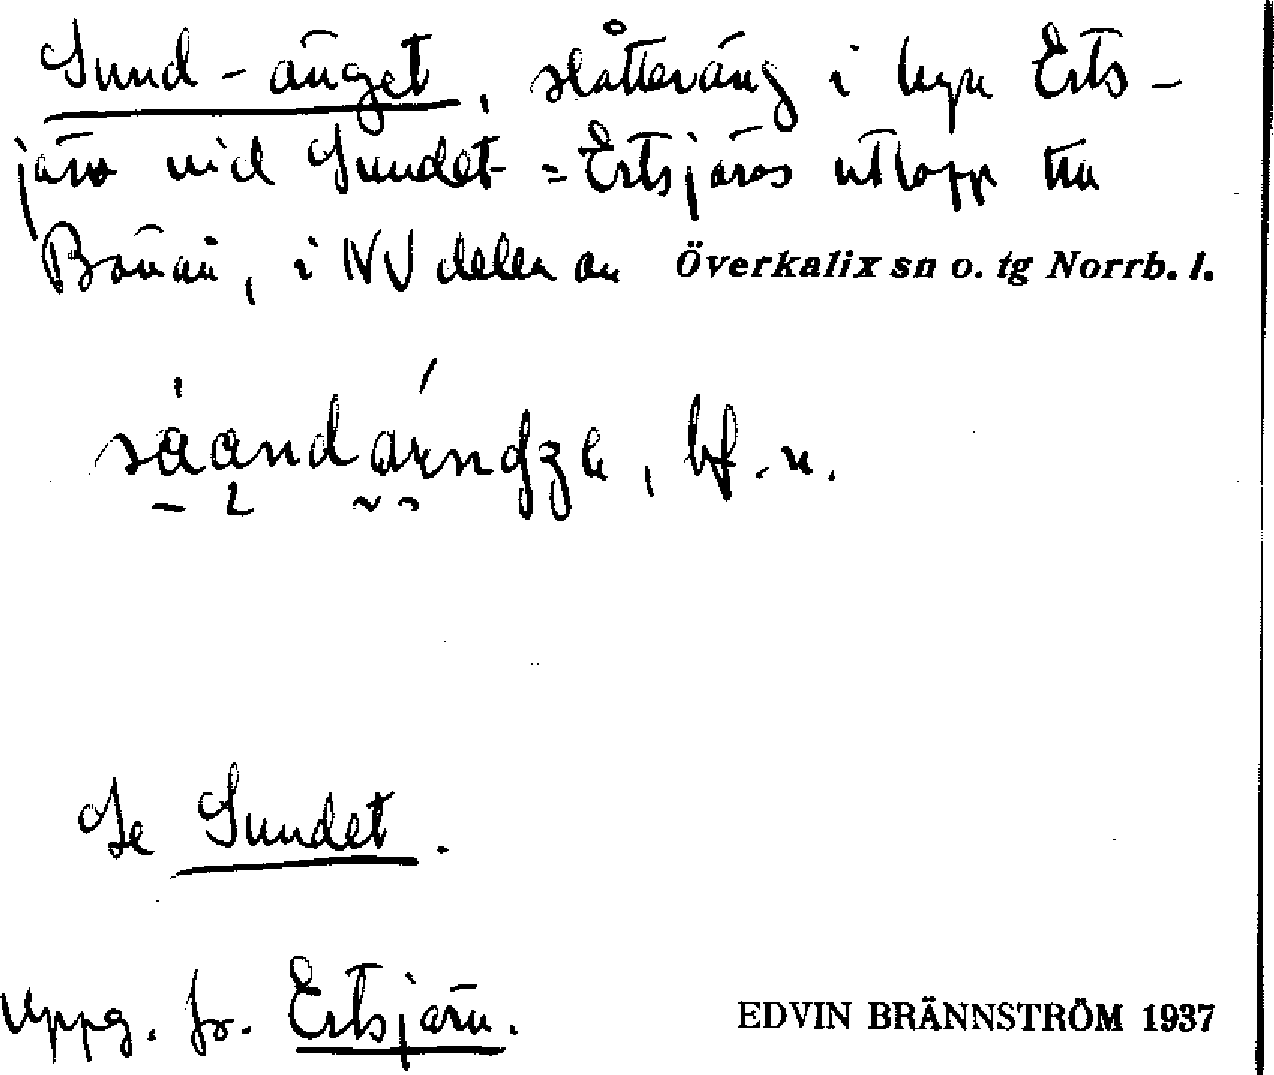 Sund-änget, slåtteräng i byn Erts-
järv vid Sundet = Ertsjärvs utlopp till
Bönån, i NV delen av Överkalix sn o. tg Norrb. l.
bf. n.
Se Sundet.
Uppg. fr. Ertsjärv.
EDVIN BRÄNNSTRÖM 1937